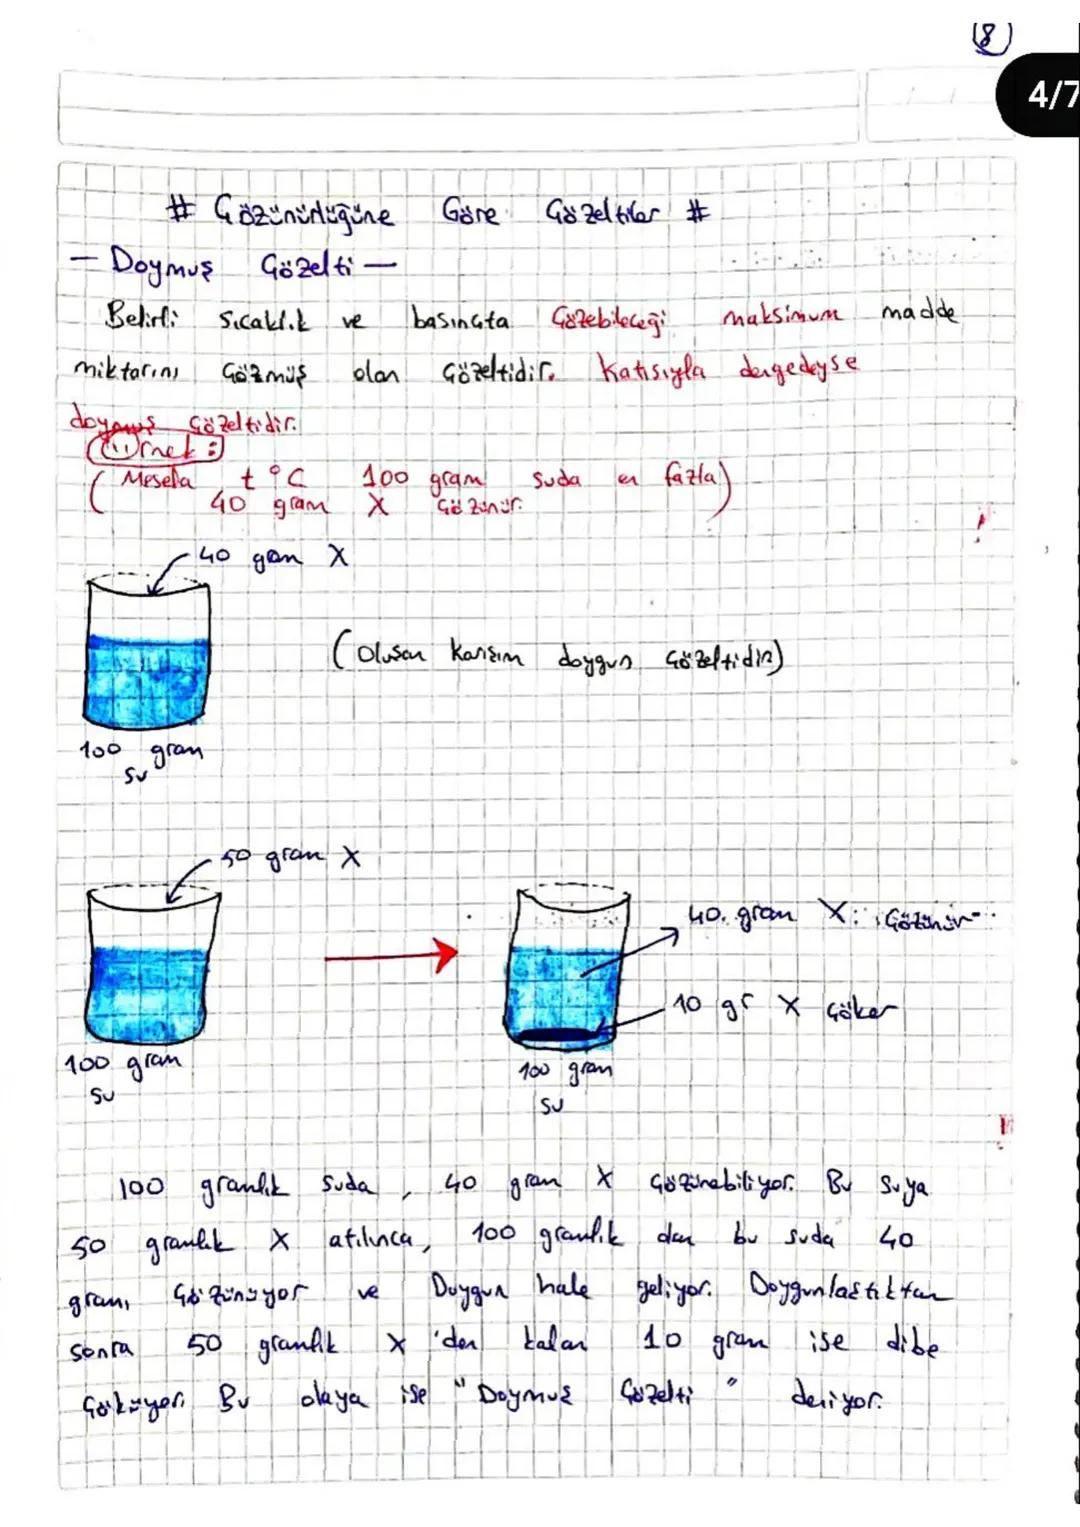 8
4/7
# Çözünürlüğüne Göre Çözeltiler #
— Doymuş Çözelti —
Belirli sıcaklık ve basınçta Çözebileceği maksimum madde
miktarını Çözmüş olan Çözeltidir. Katısıyla dengedeyse
doymuş Çözeltidir.
Örnek:
(Mesela t °C 100 gram suda en fazla)
40 gram X Çözünür.
40 gram X
(Oluşan karışım doygun Çözeltidir)
100 gram
su
50 gram X
40 gram X Çözünür
10 gr X Çöker
100 gram
su
100 gram
su
100 gramlık suda, 40 gram X Çözünebiliyor. Bu suya
50 gramlık X atılınca, 100 gramlık olan bu suda 40
gramı Çözünüyor ve Doygun hale geliyor. Doygunlaştıktan
sonra 50 gramlık X'den kalan 10 gram ise dibe
Çöküyor. Bu olaya ise "Doymuş Çözelti" deniyor.